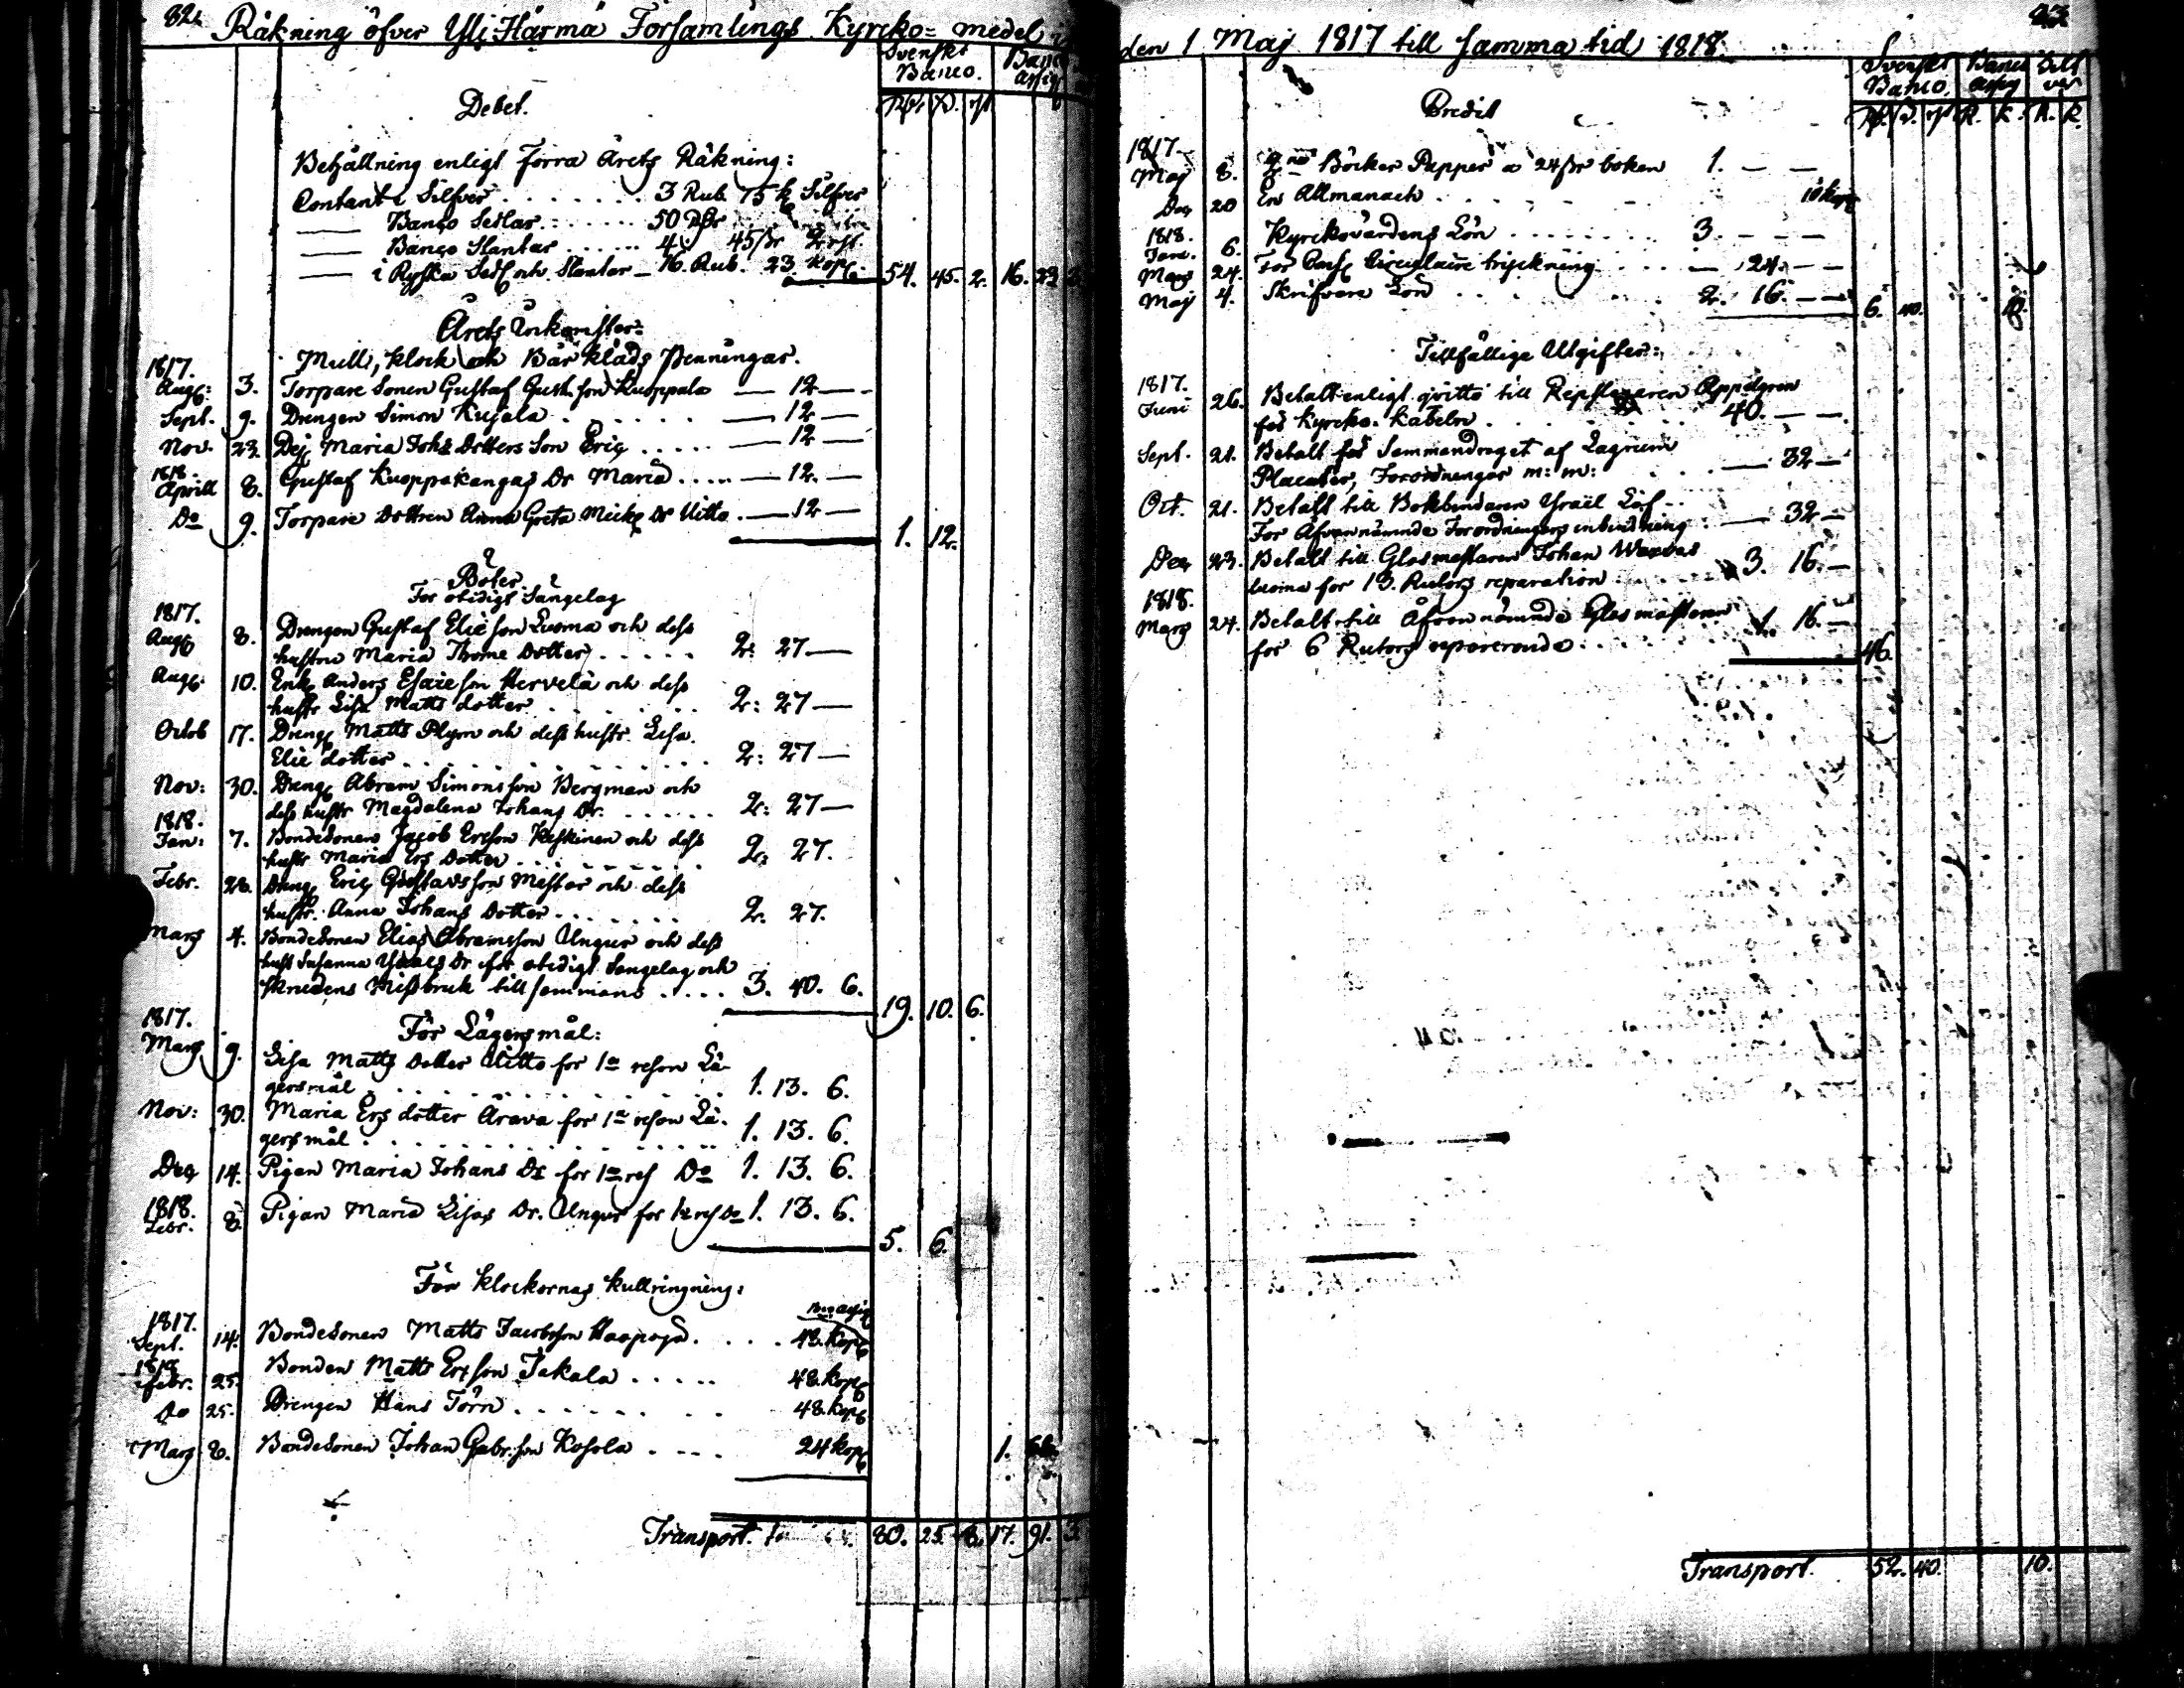 82.
Räkning öfver Ylj Härmä Församlings Kyrcko= medel
Svenskt Banco.
Debet.
Behållning enligt förra Årets Räkning:
Contant i Silfver . . . . . . . 3 Rub. 75 k Silfver
—— Banco Sedlar . . . . . . 50 Rdr
—— Banco Slantar . . . . . . 4. 45 sr 2 rst.
—— i Ryska Sedl och Slantar — 16. Rub. 23 kop. 54. 45. 2. 16. 23
Årets Inkomster:
Mull, klock och Bårkläds Penningar.
1817.
Aug: 3. Torpare Sonen Gustaf Gust.son Kuoppala — 12 —
Sept. 9. Drengen Simon Kujala . . . . . . — 12 —
Nov. 23. Maria Johs Dotters Son Eric . . . . — 12 —
1818.
Aprill 8. Gustaf Kuoppakangas Dr Maria . . . . — 12. —
Do 9. Torpare Dottren Anna Greta Mickz Dr Uitto . — 12 —
1. 12.
Böter.
För otidigt Sängelag
1817.
Aug 8. Drengen Gustaf Elieson Luoma och dess
hustru Maria Thome Dotter . . . . . 2: 27 —
Aug. 10. Enk. Anders Esaieson Hervelä och dess
hustr Lisa Matts dotter . . . . . . . 2: 27 —
Octob 17. Dreng Matts Plym och dess hustr. Lisa
Elie dotter . . . . . . . . . . . . 2: 27 —
Nov: 30. Dreng Abram Simonsson Bergman och
dess hustr Magdalena Johans Dr. . . . . . 2: 27 —
1818.
Jan: 7. Bondesonen Jacob Ersson Keskinen och dess
hustr Maria Ers Dotter . . . . . . . . 2: 27.
Febr. 28. Dreng Eric Gustavsson Mestar och dess
hustr. Anna Johans Dotter . . . . . . . 2. 27.
Mars 4. Bondesonen Elias Abramsson Ungur och dess
hust Susanna Dr för otidigt Sängelag och
Skrudens Missbruk tillsammans . . . . 3. 40. 6.
19. 10. 6.
1817. För Lägersmål:
Mars 9. Lisa Matts Dotter Uitto for 1a reson Lä-
gersmål . . . . . . . . . . . . . 1. 13. 6.
Nov: 30. Maria Ers dotter Årava for 1a reson Lä-
gersmål . . . . . . . . . . . . . 1. 13. 6.
Dec 14. Pigan Maria Johans Dr for 1a res Do 1. 13. 6.
1818.
Febr. 8. Pigan Maria Lisas Dr. Ungur for 1a res Do 1. 13. 6.
5. 6.
För klockornas kullringning:
1817.
Sept. 14. Bondesonen Matts Jacobsson Haapoja . . . . 48. kop
1818
Febr. 25. Bonden Matts Ersson Jakala . . . . . 48. kop
Do 25. Drengen Hans Törn . . . . . . . . 48. kop
Mars 8. Bondesonen Johan Gabr.son Kosola . . . . 24 kop
1. 68.
Transport. 80. 25. 8. 17. 91. 3
den 1 Maj 1817 till samma tid 1818.
83
Svenskt Banco. Banco assig Silfver
Credit
1817
Maj 8. 2ne Böcker Papper a 24 sr boken 1. — —
Dec 20 En Allmanach . . . . . . 10 kop
1818.
Jan. 6. Kyrckovärdens Lön . . . . . . . . 3. — — —
Mars 24. För Cons Circulaire tryckning . . . — 24. — —
Maj 4. Skrifvare Lön . . . . . . . . 2. 16. — —
6. 40. 10.
Tillfällige Utgifter:
1817.
Juni 26. Betalt enligt qvitto till Repslagaren Appelgren
för Kyrcko-Kabeln . . . . . . . . . 40. — —
Sept. 21. Betalt för Sammandraget af Lagrum
Placater, Forordningar m: m: . . . — 32 —
Oct. 21. Betalt till Bokbindaren Israël Löf
För Äfvannämnde Forordningars inbindning . — 32 —
Dec 23. Betalt till Glasmästaren Johan
Luoma för 13. Rutors reparation . . . . . 3. 16. —
1818.
Mars 24. Betalt till Äfvan nämnde Glasmästaren 1. 16. —
för 6 Rutors reparerande . . . . . .
46.
Transport. 52. 40. 10.